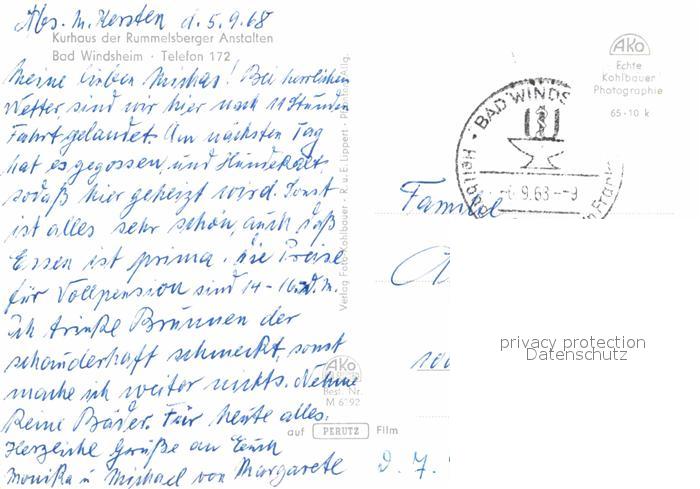 Abs. M. Kersten d. 5.9.68
Kurhaus der Rummelsberger Anstalten
Bad Windsheim · Telefon 172
Meine lieben Michas! Bei herrlichen
Wetter sind wir hier nach 11 Stunden
Fahrt gelandet. Am nächsten Tag
hat es gegossen, und Hundekalt
sodaß hier geheizt wird. Sonst
ist alles sehr schön, auch daß
Essen ist prima. die Preise
für Vollpension sind 14-16. D.M.
ich trinke Brunnen der
schauderhaft schmeckt, sonst
mache ich weiter nichts. Nehme
keine Bäder. Für heute alles.
Herzliche Grüße an Euch
Monika u Michael von Margarete
Verlag Foto-Kohlbauer · R. u. E. Lippert
AKo
Best. Nr.
M 6192
auf PERUTZ Film
AKo
Echte
Kohlbauer
Photographie
65-10 k
BAD WINDS
9.68--9
Familie
privacy protection
Datenschutz